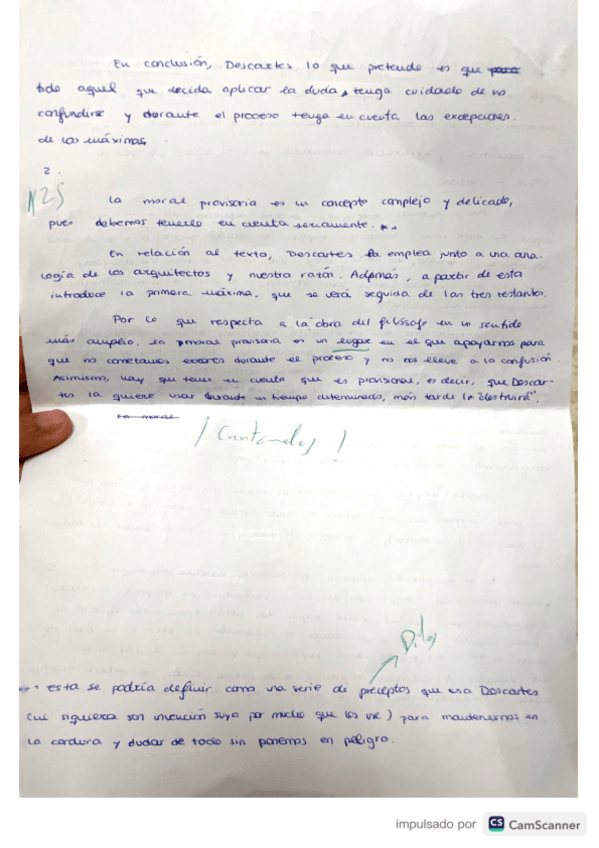 En conclusión, Descartes lo que pretende es que para
todo aquel que decida aplicar la duda, tenga cuidado de no
confundirse y durante el proceso tenga en cuenta las excepciones
de las máximas.
2.
La moral provisoria es un concepto complejo y delicado,
pues debemos tenerlo en cuenta seriamente. *
En relación al texto, Descartes la emplea junto a una ana-
logía de los arquitectos y nuestra razón. Además, a partir de esta
introduce la primera máxima, que se verá seguida de las tres restantes.
Por lo que respecta a la obra del filósofo en un sentido
más amplio, la moral provisoria es un lugar en el que apoyarnos para
que no cometamos errores durante el proceso y no nos lleve a la confusión.
Asimismo, hay que tener en cuenta que es provisional, es decir, que Descar-
tes la quiere usar durante un tiempo determinado, más tarde la "destruirá".
la moral
¡Cuéntamelas!
Dilos
esta se podría definir como una serie de preceptos que usa Descartes
(ni siquiera son invención suya por mucho que los use) para mantenernos en
la cordura y dudar de todo sin ponernos en peligro.
impulsado por CS CamScanner